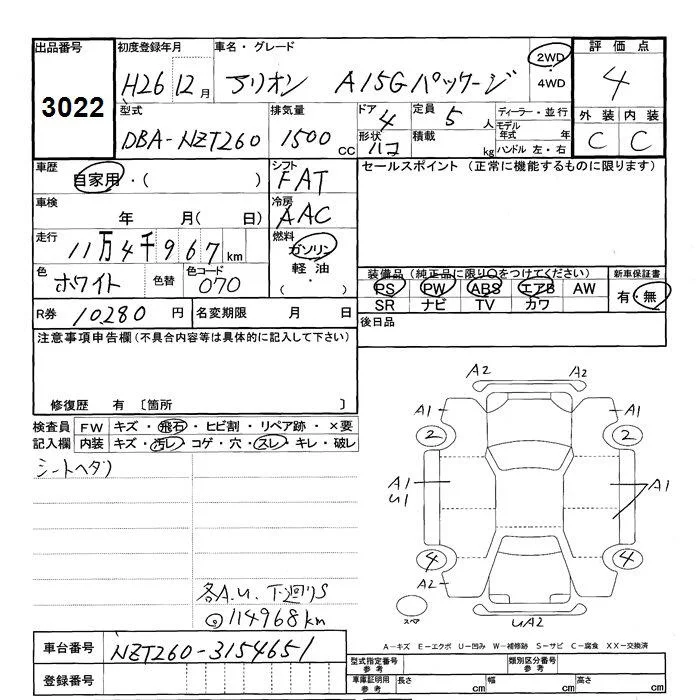 出品番号 初度登録年月 車名・グレード 評価点
3022 H26 12月 アリオン A15Gパッケージ 2WD・4WD 4
型式 排気量 ドア 定員 ディーラー・並行 外装 内装
DBA-NZT260 1500cc 4 5人 モデル年式 年 C C
形状 ハコ 積載 kg ハンドル 左・右
車歴 自家用・( ) シフト FAT セールスポイント (正常に機能するものに限ります)
車検 年 月( 日) 冷房 AAC
走行 11万4千967km 燃料 ガソリン
軽油
( ・ )
色 ホワイト 色替 色コード 070
装備品(純正品に限り○をつけてください) 新車保証書
PS PW ABS エアB AW 有・無
SR ナビ TV カワ
R券 10,280円 名変期限 月 日 後日品
注意事項申告欄(不具合内容等は具体的に記入して下さい)
修復歴 有 [箇所 ]
検査員 FW キズ・飛石・ヒビ割・リペア跡・×要
記入欄 内装 キズ・汚レ・コゲ・穴・スレ・キレ・破レ
シートヘタリ
A2 A2
A1 A1
2 2
A1 A1
U1
4 4
A2
UA2
スペア
各A.U. 下廻りS
@114968km
A-キズ E-エクボ U-凹み W-補修跡 S-サビ C-腐食 XX-交換済
車台番号 NZT260-3154651
登録番号
型式指定番号 参考 類別区分番号 参考
車庫証明用 参考 長さ cm 幅 cm 高さ cm